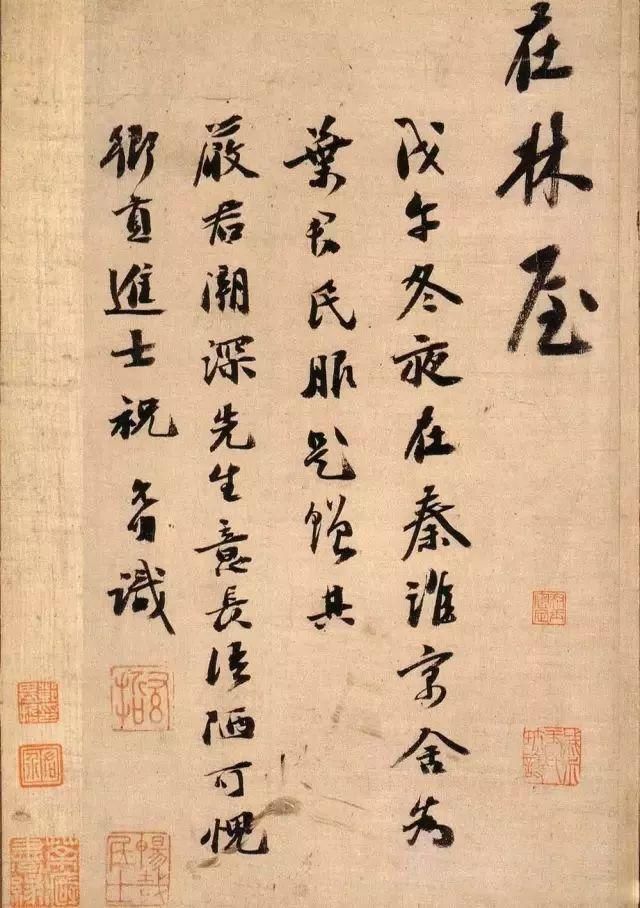 在林屋
戊午冬夜在秦淮京舍為
葉君民服題贈其
嚴君湖深先生意長語陋可愧
鄉貢進士祝允明識